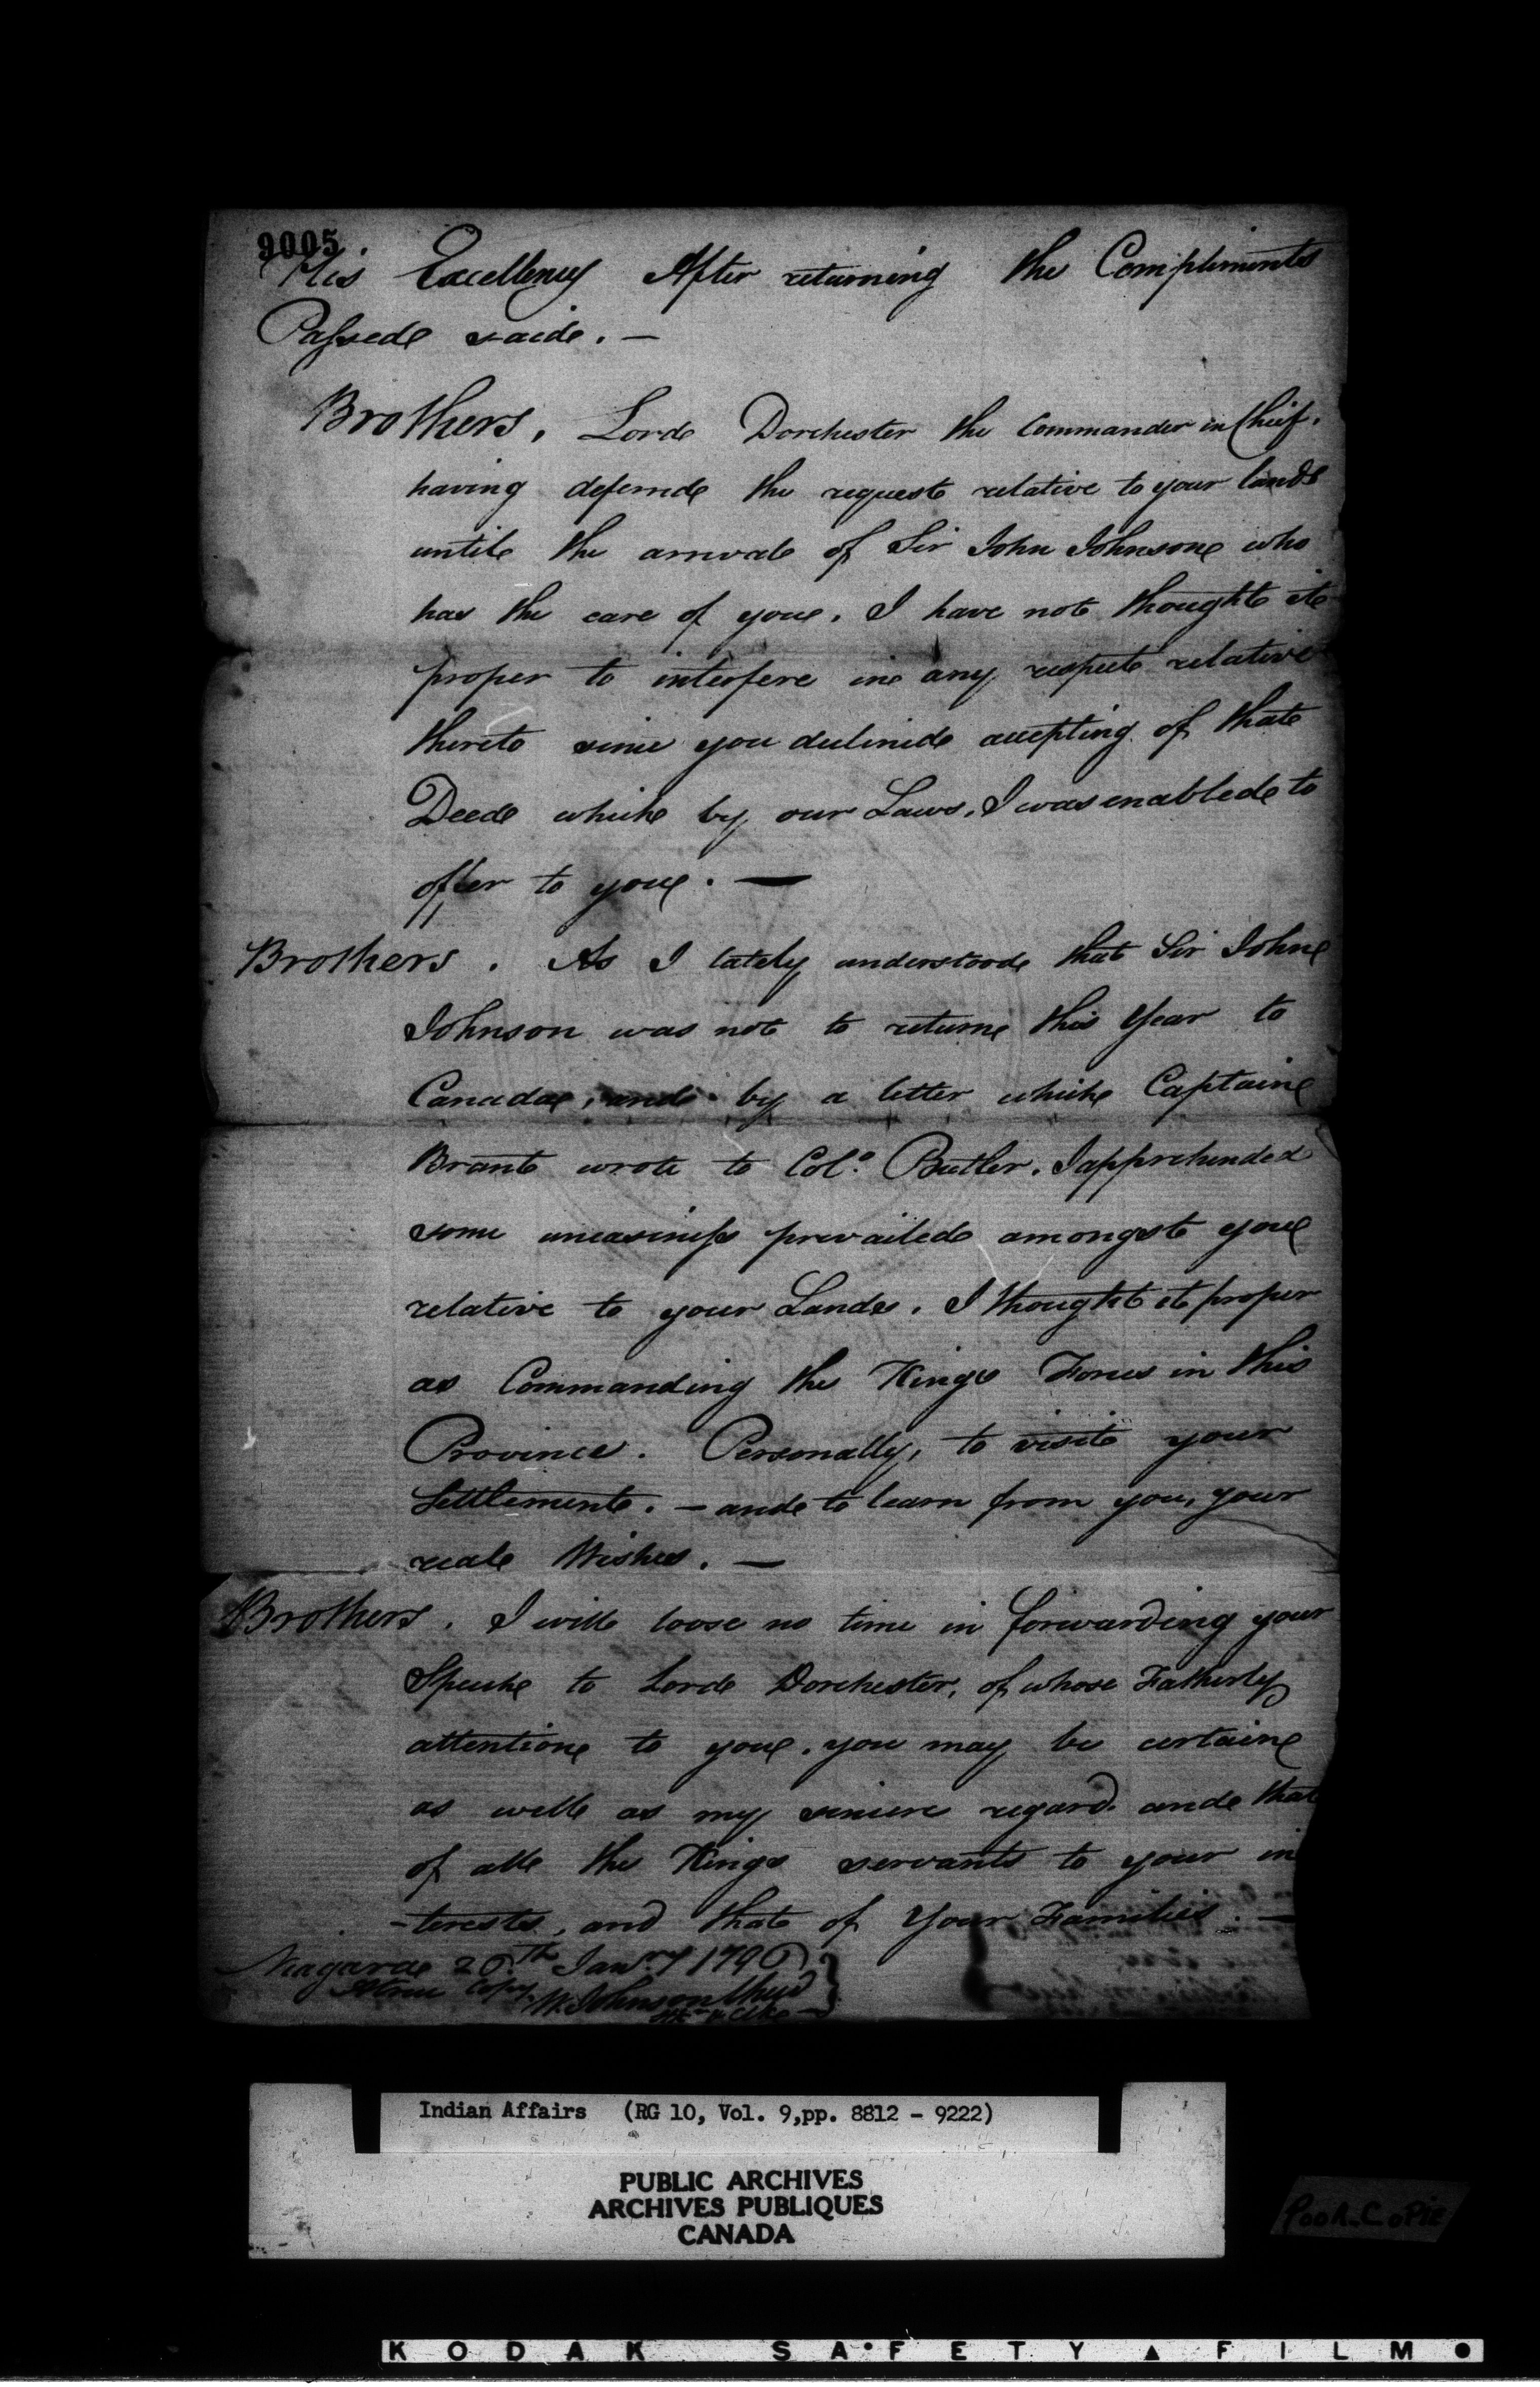 9005.
His Excellency After returning the Compliments
Passed said. —
Brothers, Lord Dorchester the Commander in Chief,
having deferred the request relative to your lands
until the arrival of Sir John Johnson who
has the care of you. I have not thought it
proper to interfere in any respect relative
thereto since you declined accepting of that
Deed which by our Laws, I was enabled to
offer to you. —
Brothers. As I lately understood that Sir John
Johnson was not to return this Year to
Canada, and by a letter which Captain
Brant wrote to Colo. Butler. I apprehended
some uneasiness prevailed amongst you
relative to your Lands. I thought it proper
as Commanding the Kings Forces in this
Province. Personally, to visit your
Settlement. — and to learn from you, your
real Wishes. —
Brothers. I will loose no time in forwarding your
Speech to Lord Dorchester, of whose Fatherly
attention to you, you may be certain
as well as my sincere regard. and that
of all the Kings servants to your in
-terests, and that of Your Families. —
Niagara 20th Janry 1796
A true Copy
W. Johnson Chew
Indian Affairs (RG 10, Vol. 9,pp. 8812 - 9222)
PUBLIC ARCHIVES
ARCHIVES PUBLIQUES
CANADA
Poor Copie
KODAK SAFETY FILM